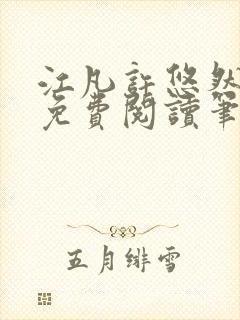 江凡許悠然
免費閱讀筆
五月緋雪